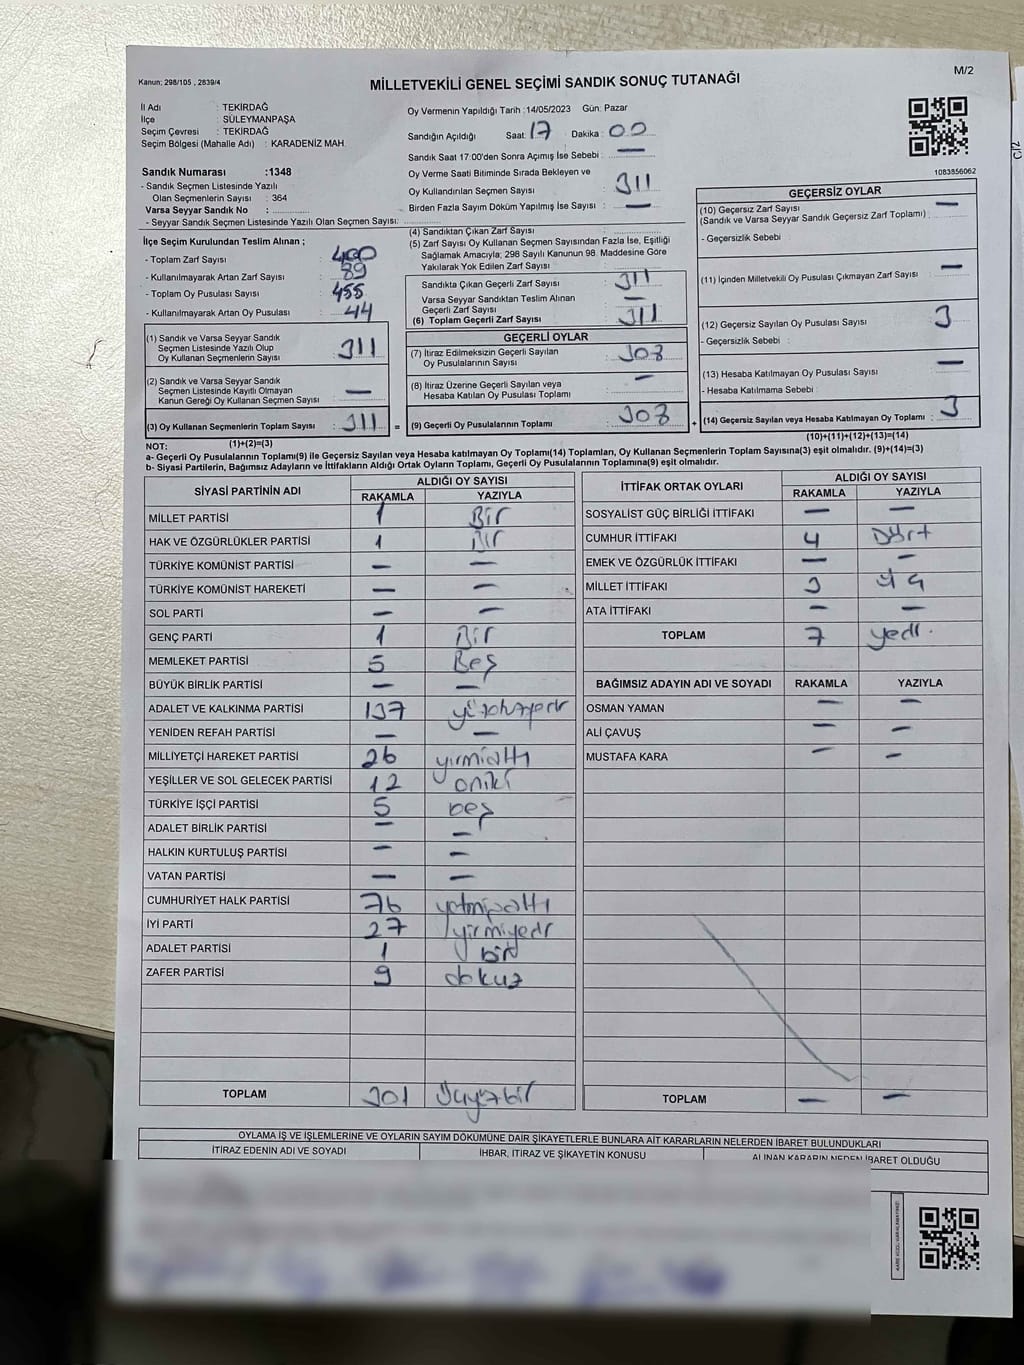 Kanun: 298/105 , 2839/4
MİLLETVEKİLİ GENEL SEÇİMİ SANDIK SONUÇ TUTANAĞI
M/2
İl Adı : TEKİRDAĞ
İlçe : SÜLEYMANPAŞA
Seçim Çevresi : TEKİRDAĞ
Seçim Bölgesi (Mahalle Adı) : KARADENİZ MAH.
Oy Vermenin Yapıldığı Tarih :14/05/2023 Gün: Pazar
Sandığın Açıldığı Saat: 17 Dakika : 00
Sandık Saat 17:00'den Sonra Açımış İse Sebebi : —
Oy Verme Saati Bitiminde Sırada Bekleyen ve
Oy Kullandırılan Seçmen Sayısı : 311
Birden Fazla Sayım Döküm Yapılmış İse Sayısı : —
1083856062
C/2
Sandık Numarası :1348
- Sandık Seçmen Listesinde Yazılı
Olan Seçmenlerin Sayısı : 364
Varsa Seyyar Sandık No :
- Seyyar Sandık Seçmen Listesinde Yazılı Olan Seçmen Sayısı:
İlçe Seçim Kurulundan Teslim Alınan ;
- Toplam Zarf Sayısı : 400
- Kullanılmayarak Artan Zarf Sayısı : 89
- Toplam Oy Pusulası Sayısı : 455
- Kullanılmayarak Artan Oy Pusulası : 44
(1) Sandık ve Varsa Seyyar Sandık
Seçmen Listesinde Yazılı Olup
Oy Kullanan Seçmenlerin Sayısı : 311
(2) Sandık ve Varsa Seyyar Sandık
Seçmen Listesinde Kayıtlı Olmayan
Kanun Gereği Oy Kullanan Seçmen Sayısı : —
(3) Oy Kullanan Seçmenlerin Toplam Sayısı : 311 =
(1)+(2)=(3)
(4) Sandıktan Çıkan Zarf Sayısı :
(5) Zarf Sayısı Oy Kullanan Seçmen Sayısından Fazla İse, Eşitliği
Sağlamak Amacıyla; 298 Sayılı Kanunun 98. Maddesine Göre
Yakılarak Yok Edilen Zarf Sayısı :
Sandıkta Çıkan Geçerli Zarf Sayısı : 311
Varsa Seyyar Sandıktan Teslim Alınan
Geçerli Zarf Sayısı : —
(6) Toplam Geçerli Zarf Sayısı : 311
GEÇERLİ OYLAR
(7) İtiraz Edilmeksizin Geçerli Sayılan
Oy Pusulalarının Sayısı : 308
(8) İtiraz Üzerine Geçerli Sayılan veya
Hesaba Katılan Oy Pusulası Toplamı : —
(9) Geçerli Oy Pusulalarının Toplamı : 308 +
GEÇERSİZ OYLAR
(10) Geçersiz Zarf Sayısı : —
(Sandık ve Varsa Seyyar Sandık Geçersiz Zarf Toplamı)
- Geçersizlik Sebebi :
(11) İçinden Milletvekili Oy Pusulası Çıkmayan Zarf Sayısı : —
(12) Geçersiz Sayılan Oy Pusulası Sayısı : 3
- Geçersizlik Sebebi :
(13) Hesaba Katılmayan Oy Pusulası Sayısı : —
- Hesaba Katılmama Sebebi :
(14) Geçersiz Sayılan veya Hesaba Katılmayan Oy Toplamı : 3
(10)+(11)+(12)+(13)=(14)
NOT:
a- Geçerli Oy Pusulalarının Toplamı(9) ile Geçersiz Sayılan veya Hesaba katılmayan Oy Toplamı(14) Toplamları, Oy Kullanan Seçmenlerin Toplam Sayısına(3) eşit olmalıdır. (9)+(14)=(3)
b- Siyasi Partilerin, Bağımsız Adayların ve İttifakların Aldığı Ortak Oyların Toplamı, Geçerli Oy Pusulalarının Toplamına(9) eşit olmalıdır.
SİYASİ PARTİNİN ADI
ALDIĞI OY SAYISI
RAKAMLA YAZIYLA
MİLLET PARTİSİ 1 Bir
HAK VE ÖZGÜRLÜKLER PARTİSİ 1 Bir
TÜRKİYE KOMÜNİST PARTİSİ — —
TÜRKİYE KOMÜNİST HAREKETİ — —
SOL PARTİ — —
GENÇ PARTİ 1 Bir
MEMLEKET PARTİSİ 5 Beş
BÜYÜK BİRLİK PARTİSİ — —
ADALET VE KALKINMA PARTİSİ 137
YENİDEN REFAH PARTİSİ — —
MİLLİYETÇİ HAREKET PARTİSİ 26 yirmialtı
YEŞİLLER VE SOL GELECEK PARTİSİ 12 oniki
TÜRKİYE İŞÇİ PARTİSİ 5 beş
ADALET BİRLİK PARTİSİ — —
HALKIN KURTULUŞ PARTİSİ — —
VATAN PARTİSİ — —
CUMHURİYET HALK PARTİSİ 76 yetmişaltı
İYİ PARTİ 27 yirmiyedi
ADALET PARTİSİ 1 bir
ZAFER PARTİSİ 9 dokuz
TOPLAM 301 Üçyüzbir
İTTİFAK ORTAK OYLARI
ALDIĞI OY SAYISI
RAKAMLA YAZIYLA
SOSYALİST GÜÇ BİRLİĞİ İTTİFAKI — —
CUMHUR İTTİFAKI 4 Dört
EMEK VE ÖZGÜRLÜK İTTİFAKI — —
MİLLET İTTİFAKI 3 üç
ATA İTTİFAKI — —
TOPLAM 7 yedi.
BAĞIMSIZ ADAYIN ADI VE SOYADI RAKAMLA YAZIYLA
OSMAN YAMAN — —
ALİ ÇAVUŞ — —
MUSTAFA KARA — —
TOPLAM — —
OYLAMA İŞ VE İŞLEMLERİNE VE OYLARIN SAYIM DÖKÜMÜNE DAİR ŞİKAYETLERLE BUNLARA AİT KARARLARIN NELERDEN İBARET BULUNDUKLARI
İTİRAZ EDENİN ADI VE SOYADI
İHBAR, İTİRAZ VE ŞİKAYETİN KONUSU
ALINAN KARARIN NEDEN İBARET OLDUĞU